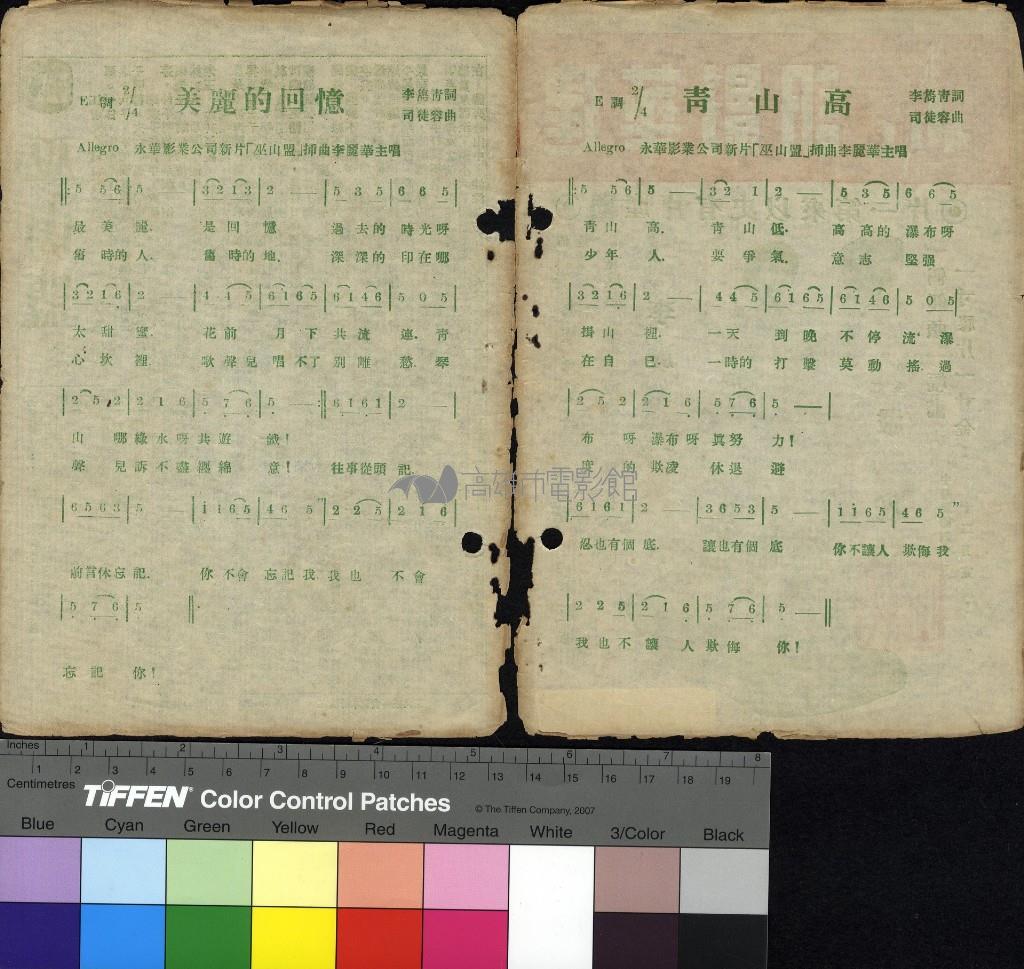 美麗的回憶
E調 2/4
李雋青詞
司徒容曲
Allegro 永華影業公司新片「巫山盟」插曲李麗華主唱
5 5 6 | 5 | 3 2 1 3 | 2 — | 5 3 5 | 6 6 5 |
最美麗. 是回憶 過去的時光呀
舊時的人. 舊時的地. 深深的印在哪
3 2 1 6 | 2 — | 4 4 5 | 6 1 6 5 | 6 1 4 6 | 5 0 5 |
太甜蜜. 花前月下共流連. 青
心坎裡. 歌聲兒唱不了別離愁 琴
2 5 2 | 2 1 6 | 5 7 6 | 5 — :|| 6 1 6 1 | 2 — |
山哪綠水呀共遊戲!
聲兒訴不盡纏綿意! 往事從頭記
6 5 6 3 | 5 | 1 1 6 5 | 4 6 5 | 2 2 5 | 2 1 6 |
前言休忘記. 你不會忘記我 我也不會
5 7 6 | 5 ||
忘記你!
青山高
E調 2/4
李雋青詞
司徒容曲
Allegro 永華影業公司新片「巫山盟」插曲李麗華主唱
||: 5 5 6 | 5 — | 3 2 1 | 2 — | 5 3 5 | 6 6 5
青山高. 青山低. 高高的瀑布呀
少年人. 要爭氣. 意志堅强
3 2 1 6 | 2 — | 4 4 5 | 6 1 6 5 | 6 1 4 6 | 5 0 5 |
掛山裡. 一天到晚不停流. 瀑
在自己. 一時的打擊莫動搖. 過
2 5 2 | 2 1 6 | 5 7 6 | 5 — |
布呀瀑布呀眞努力!
度的欺凌休退避
6 1 6 1 | 2 — | 3 6 5 3 | 5 — | 1 1 6 5 | 4 6 5 "
忍也有個底. 讓也有個底 你不讓人欺侮我
2 2 5 | 2 1 6 | 5 7 6 | 5 — ||
我也不讓人欺侮你!
高雄市電影館
Inches 1 2 3 4 5 6 7 8
1 2 3 4 5 6 7 8 9 10 11 12 13 14 15 16 17 18 19
Centimetres
TIFFEN® Color Control Patches
© The Tiffen Company, 2007
Blue Cyan Green Yellow Red Magenta White 3/Color Black